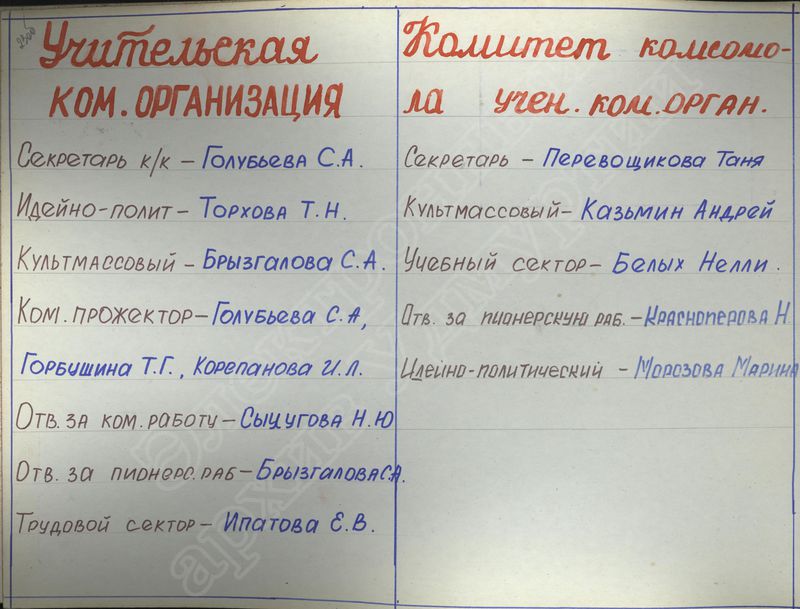 2300
Учительская
ком. организация
Секретарь к/к – Голубьева С.А.
Идейно-полит – Торхова Т.Н.
Культмассовый – Брызгалова С.А.
Ком. прожектор – Голубьева С.А,
Горбушина Т.Г., Корепанова И.Л.
Отв. за ком. работу – Сыцугова Н.Ю
Отв. за пионерс. раб – Брызгалова С.А.
Трудовой сектор – Ипатова Е.В.
Комитет комсомо-
ла учен. ком. орган.
Секретарь – Перевощикова Таня
Культмассовый – Казьмин Андрей
Учебный сектор – Белых Нелли.
Отв. за пионерскую раб. – Красноперова Н
Идейно-политический – Морозова Марина
Электронный
архив Удмуртии